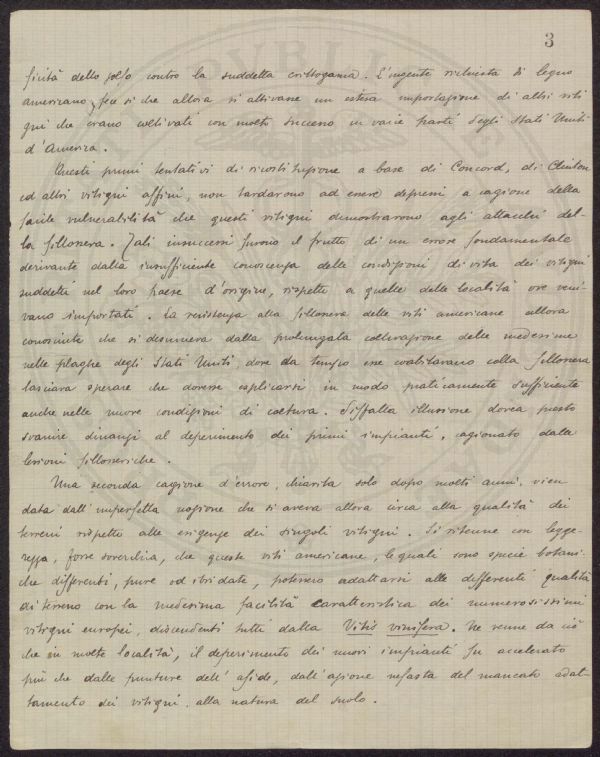 3
ficità dello zolfo contro la suddetta crittogama. L'ingente richiesta di legno
americano, fece sì che allora si attivasse un estesa importazione di altri viti
gni che erano coltivati con molto successo in varie parti degli Stati Uniti
d'America.
Questi primi tentativi di ricostituzione a base di Concord, di Clinton
ed altri vitigni affini, non tardarono ad essere depressi a cagione della
facile vulnerabilità che questi vitigni dimostrarono agli attacchi del-
la fillossera. Tali insuccessi furono il frutto di un errore fondamentale
derivante dalla insufficiente conoscenza delle condizioni di vita dei vitigni
suddetti nel loro paese d'origine, rispetto a quelle delle località ove veni-
vano importati. La resistenza alla fillossera delle viti americane allora
conosciute che si desumeva dalla prolungata coltivazione delle medesime
nelle plaghe degli Stati Uniti, dove da tempo esse coabitavano colla fillossera
lasciava sperare che dovesse esplicarsi in modo praticamente sufficiente
anche nelle nuove condizioni di coltura. Siffatta illusione dovea presto
svanire dinanzi al deperimento dei primi impianti, cagionato dalle
lesioni fillosseriche.
Una seconda cagione d'errore, chiarita solo dopo molti anni, vien
data dall'imperfetta nozione che si aveva allora circa alla qualità dei
terreni rispetto alle esigenze dei singoli vitigni. Si ritenne con legge-
rezza, forse soverchia, che queste viti americane, le quali sono specie botani-
che differenti, pure od ibridate, potessero adattarsi alle differenti qualità
di terreno con la medesima facilità caratteristica dei numerosissimi
vitigni europei, discendenti tutti dalla Vitis vinifera. Ne venne da ciò
che in molte località, il deperimento dei nuovi impianti fu accelerato
più che dalle punture dell'afide, dall'azione nefasta del mancato adat-
tamento dei vitigni, alla natura del suolo.